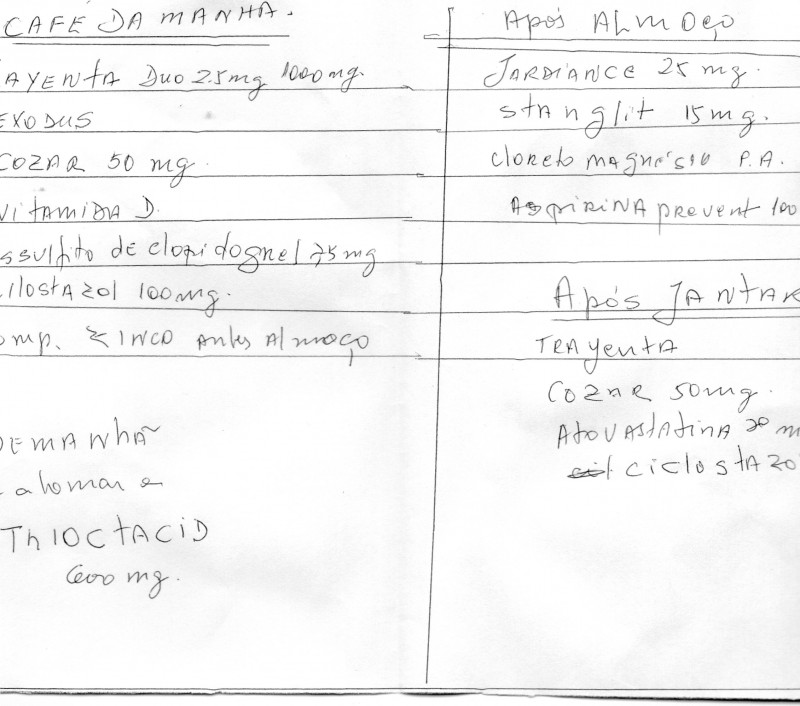 CAFE DA MANHA.
AYENTA DUO 2.5mg 1000mg.
EXODUS
COZAR 50 mg.
VITAMINA D.
ssulfito de clopidognel 75mg
ilostAzol 100mg.
omp. ZINCO Antes Almoço
DEMANHÃ
ThIOCtACID
600 mg.
Após ALMOÇO
JARDIANCE 25 mg.
stAnglit 15mg.
cloreto magnésio P.A.
ASpiRINA prevent 100
Após JANTAR
TRAYENTA
COZAR 50mg.
AtOVAStAtINA 20 m
CIClostAZO